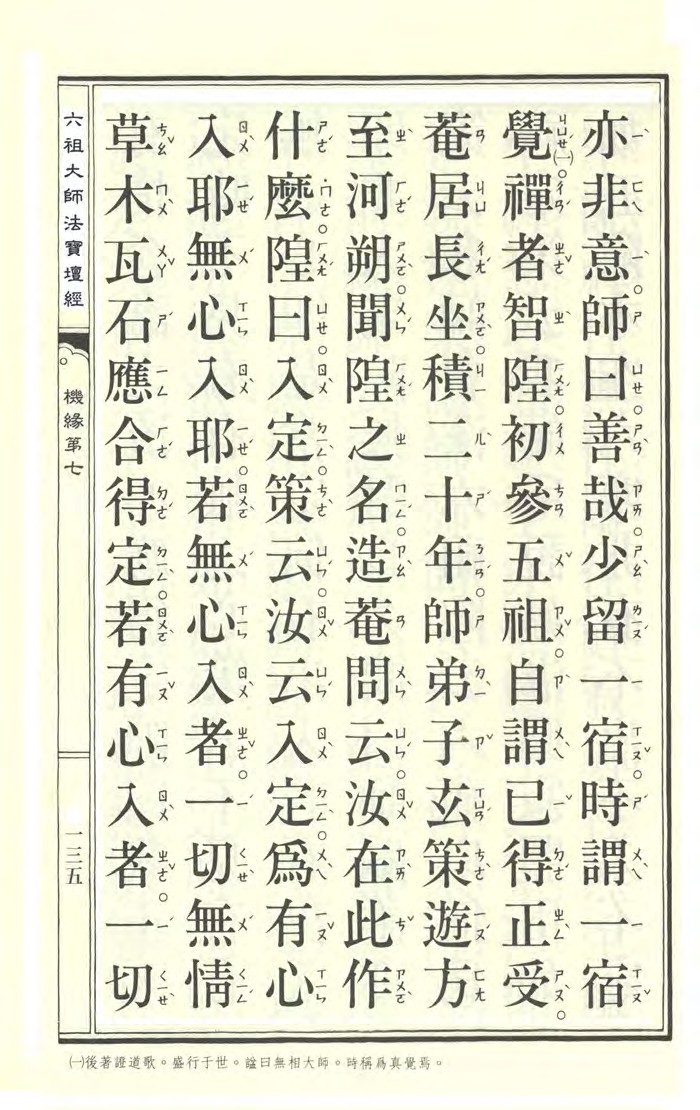 亦非意。師曰。善哉。少留一宿。時謂一宿
覺㈠。禪者智隍。初參五祖。自謂已得正受。
菴居長坐。積二十年。師弟子玄策遊方
至河朔。聞隍之名。造菴問云。汝在此作
什麼。隍曰。入定。策云。汝云入定。爲有心
入耶無心入耶。若無心入者。一切無情
草木瓦石應合得定。若有心入者。一切
六祖大師法寶壇經
機緣第七
一三五
㈠後著證道歌。盛行于世。諡曰無相大師。時稱爲真覺焉。